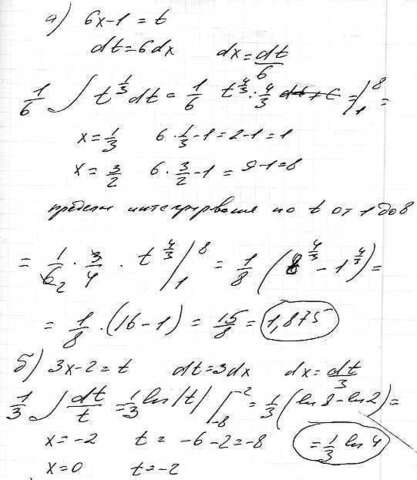 а) 6x-1=t
dt=6dx dx=dt/6
1/6 ∫ t^(1/3) dt = 1/6 t^(4/3) · 4/3 |₁⁸ =
x=1/3 6·1/3-1=2-1=1
x=3/2 6·3/2-1=9-1=8
пределы интегрирования по t от 1 до 8
= 1/6₂ · 3/4 · t^(4/3) |₁⁸ = 1/8 (8^(4/3) - 1^(4/3)) =
= 1/8 · (16-1) = 15/8 = 1,875
б) 3x-2=t dt=3dx dx=dt/3
1/3 ∫ dt/t = 1/3 ln|t| |₋₈⁻² = 1/3 (ln8-ln2) =
x=-2 t=-6-2=-8 = 1/3 ln4
x=0 t=-2